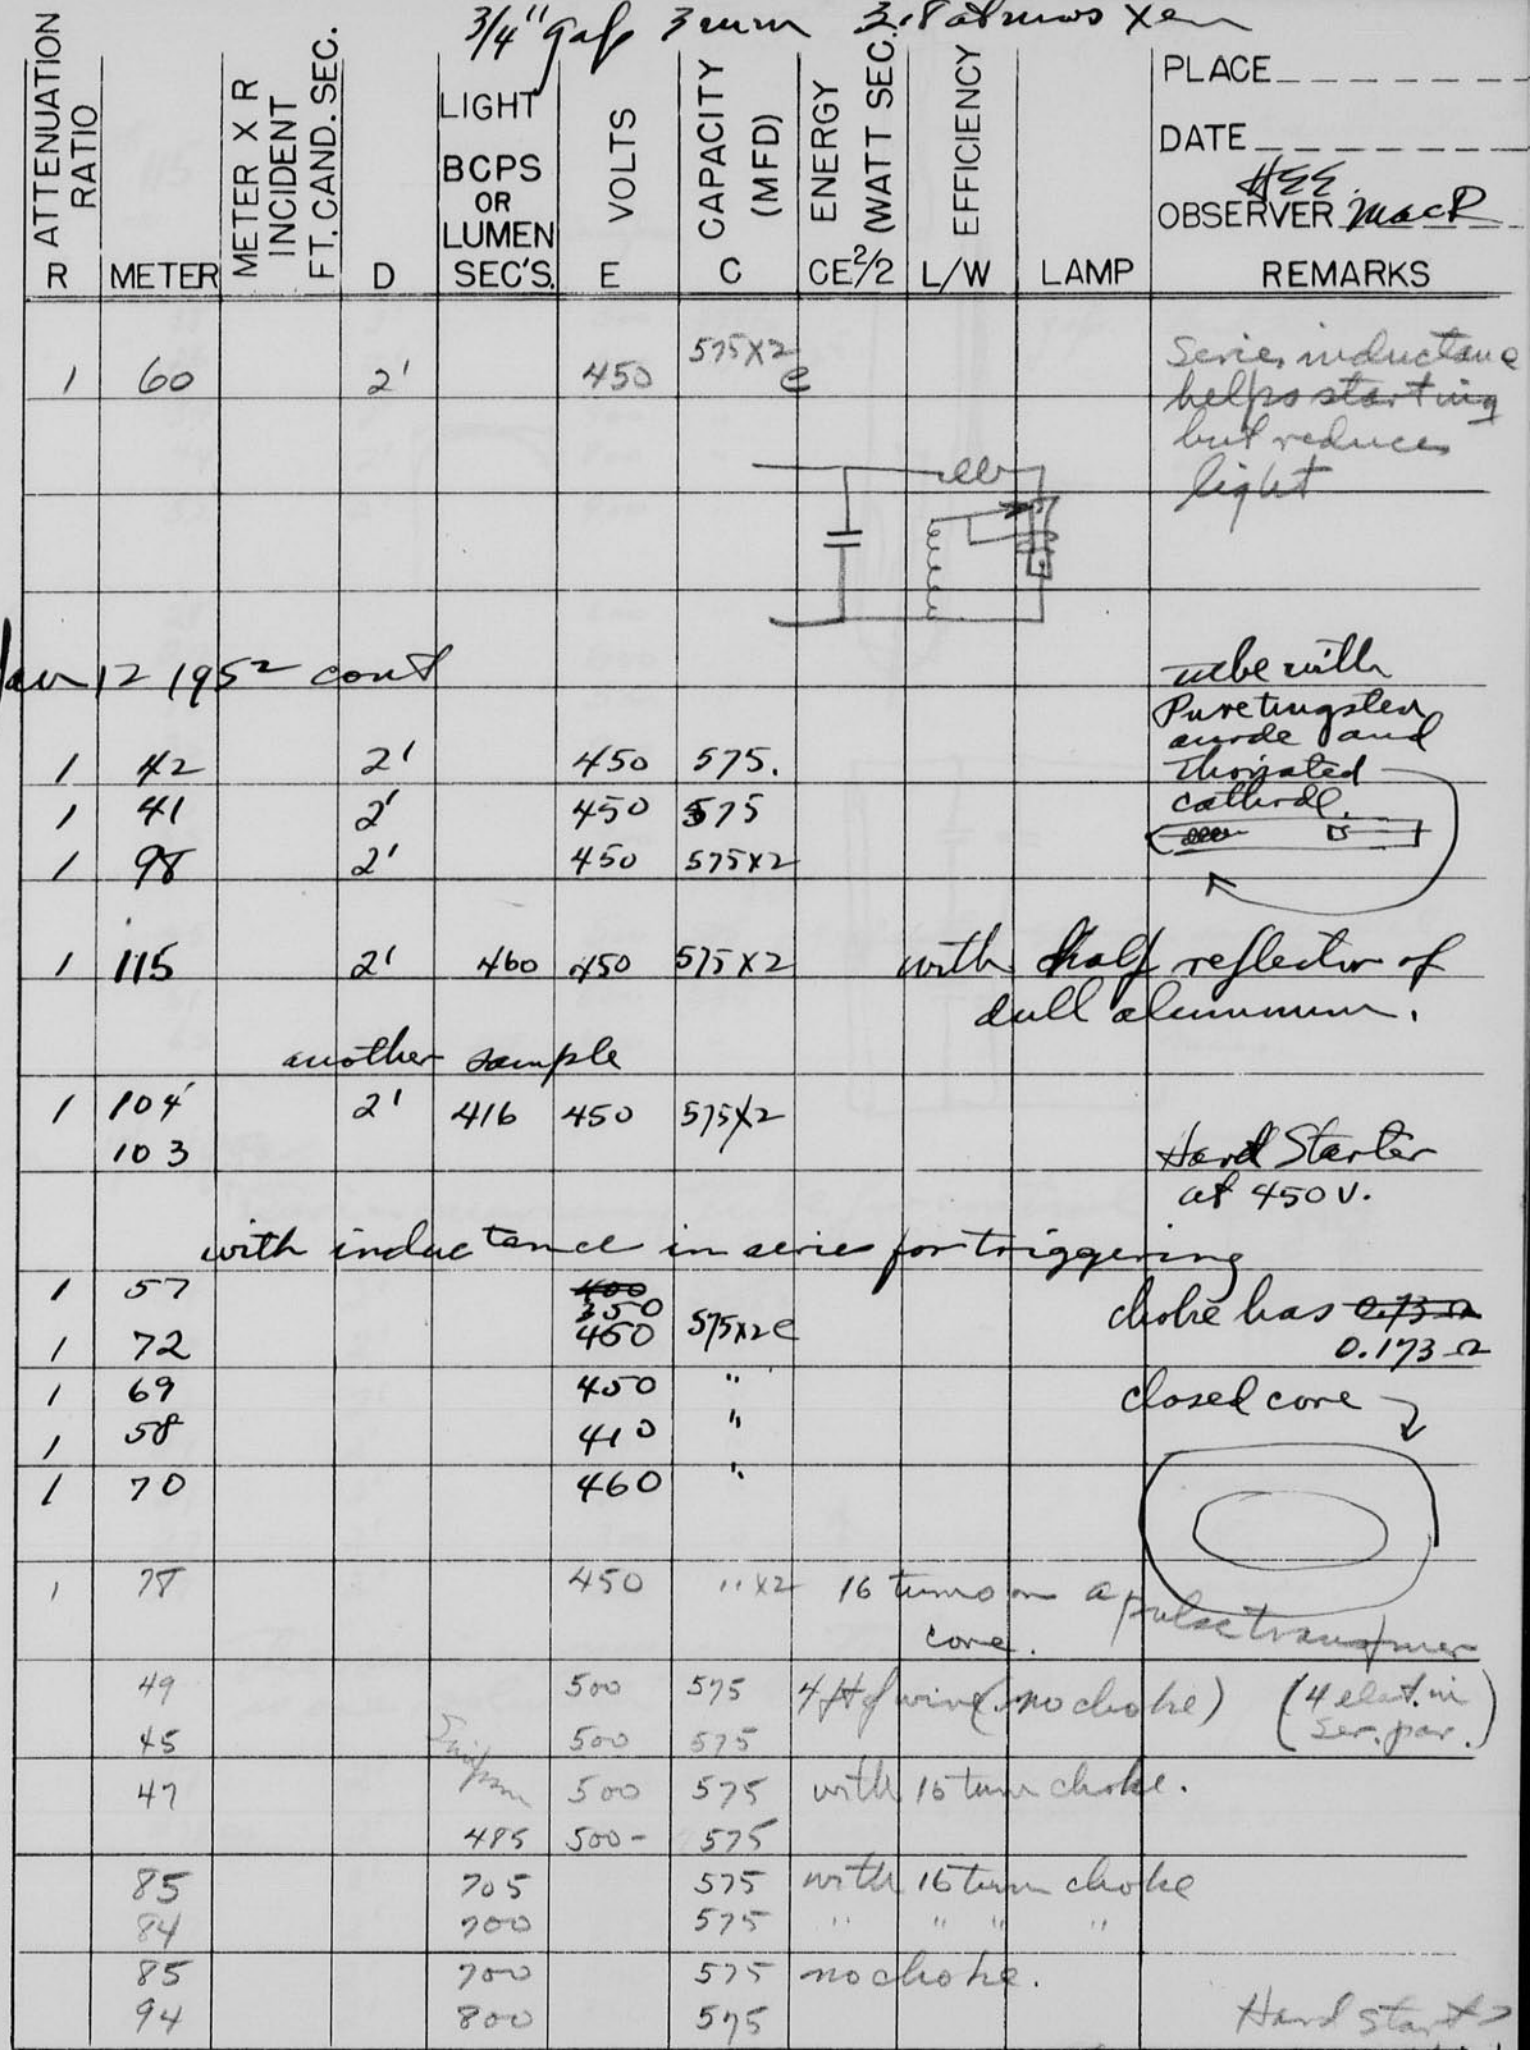 3/4" gap 3 mm 3.8 atmos Xen
ATTENUATION RATIO R
METER
METER X R INCIDENT FT. CAND. SEC.
D
LIGHT BCPS OR LUMEN SEC'S.
VOLTS E
CAPACITY (MFD) C
ENERGY (WATT SEC.) CE²/2
EFFICIENCY L/W
LAMP
PLACE
DATE
HEE
OBSERVER MacR
REMARKS
1 60 2' 450 575X2 e
Series inductance
helps starting
but reduces
light
Jan 12 1952 cont
tube with
Pure tungsten
anode and
Thoriated
cathode.
1 42 2' 450 575.
1 41 2' 450 575
1 98 2' 450 575X2
1 115 2' 460 450 575X2 with half reflector of
dull aluminum.
another sample
1 104 2' 416 450 575X2
103
Hard Starter
at 450 V.
with inductance in series for triggering
1 57 400
350
1 72 450 575X2 e
choke has 0.73 Ω
0.173 Ω
1 69 450 "
closed core
1 58 410 "
1 70 460 "
1 78 450 " X2 16 turns on a pulse transfmer
core.
49 500 575 4 ft of wire (no choke) (4 elect. in
ser. par.)
45 500 575
47 500 575 with 16 turn choke.
485 500- 575
85 705 575 with 16 turn choke
84 700 575 " " " "
85 700 575 no choke.
94 800 575 Hard start